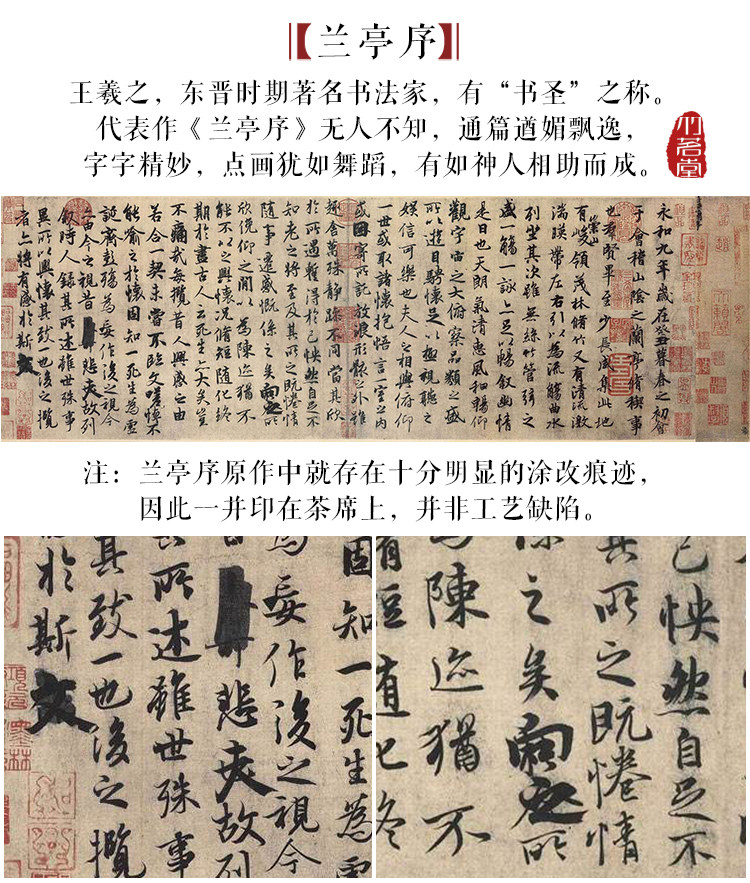 兰亭序
王羲之，东晋时期著名书法家，有“书圣”之称。
代表作《兰亭序》无人不知，通篇遒媚飘逸，
字字精妙，点画犹如舞蹈，有如神人相助而成。
永和九年歲在癸丑暮春之初會
于會稽山陰之蘭亭脩稧事
也羣賢畢至少長咸集此地
有崇山峻領茂林脩竹又有清流激
湍暎帶左右引以為流觴曲水
列坐其次雖無絲竹管弦之
盛一觴一詠亦足以暢敘幽情
是日也天朗氣清惠風和暢仰
觀宇宙之大俯察品類之盛
所以遊目騁懷足以極視聽之
娛信可樂也夫人之相與俯仰
一世或取諸懷抱悟言一室之內
或因寄所託放浪形骸之外雖
趣舍萬殊靜躁不同當其欣
於所遇暫得於己怏然自足不
知老之將至及其所之既惓情
隨事遷感慨係之矣向之所
欣俛仰之閒以為陳迹猶不
能不以之興懷況脩短隨化終
期於盡古人云死生亦大矣豈
不痛哉每攬昔人興感之由
若合一契未嘗不臨文嗟悼不
能喻之於懷固知一死生為虛
誕齊彭殤為妄作後之視今
亦由今之視昔悲夫故列
敘時人錄其所述雖世殊事
異所以興懷其致一也後之攬
者亦將有感於斯文
注：兰亭序原作中就存在十分明显的涂改痕迹，
因此一并印在茶席上，并非工艺缺陷。
固知一死生為虛
為妄作後之視今
悲夫故列
其所述雖世殊事
其致一也後之攬
於斯文
己怏然自足不
其所之既惓情
係之矣向之所
為陳迹猶不